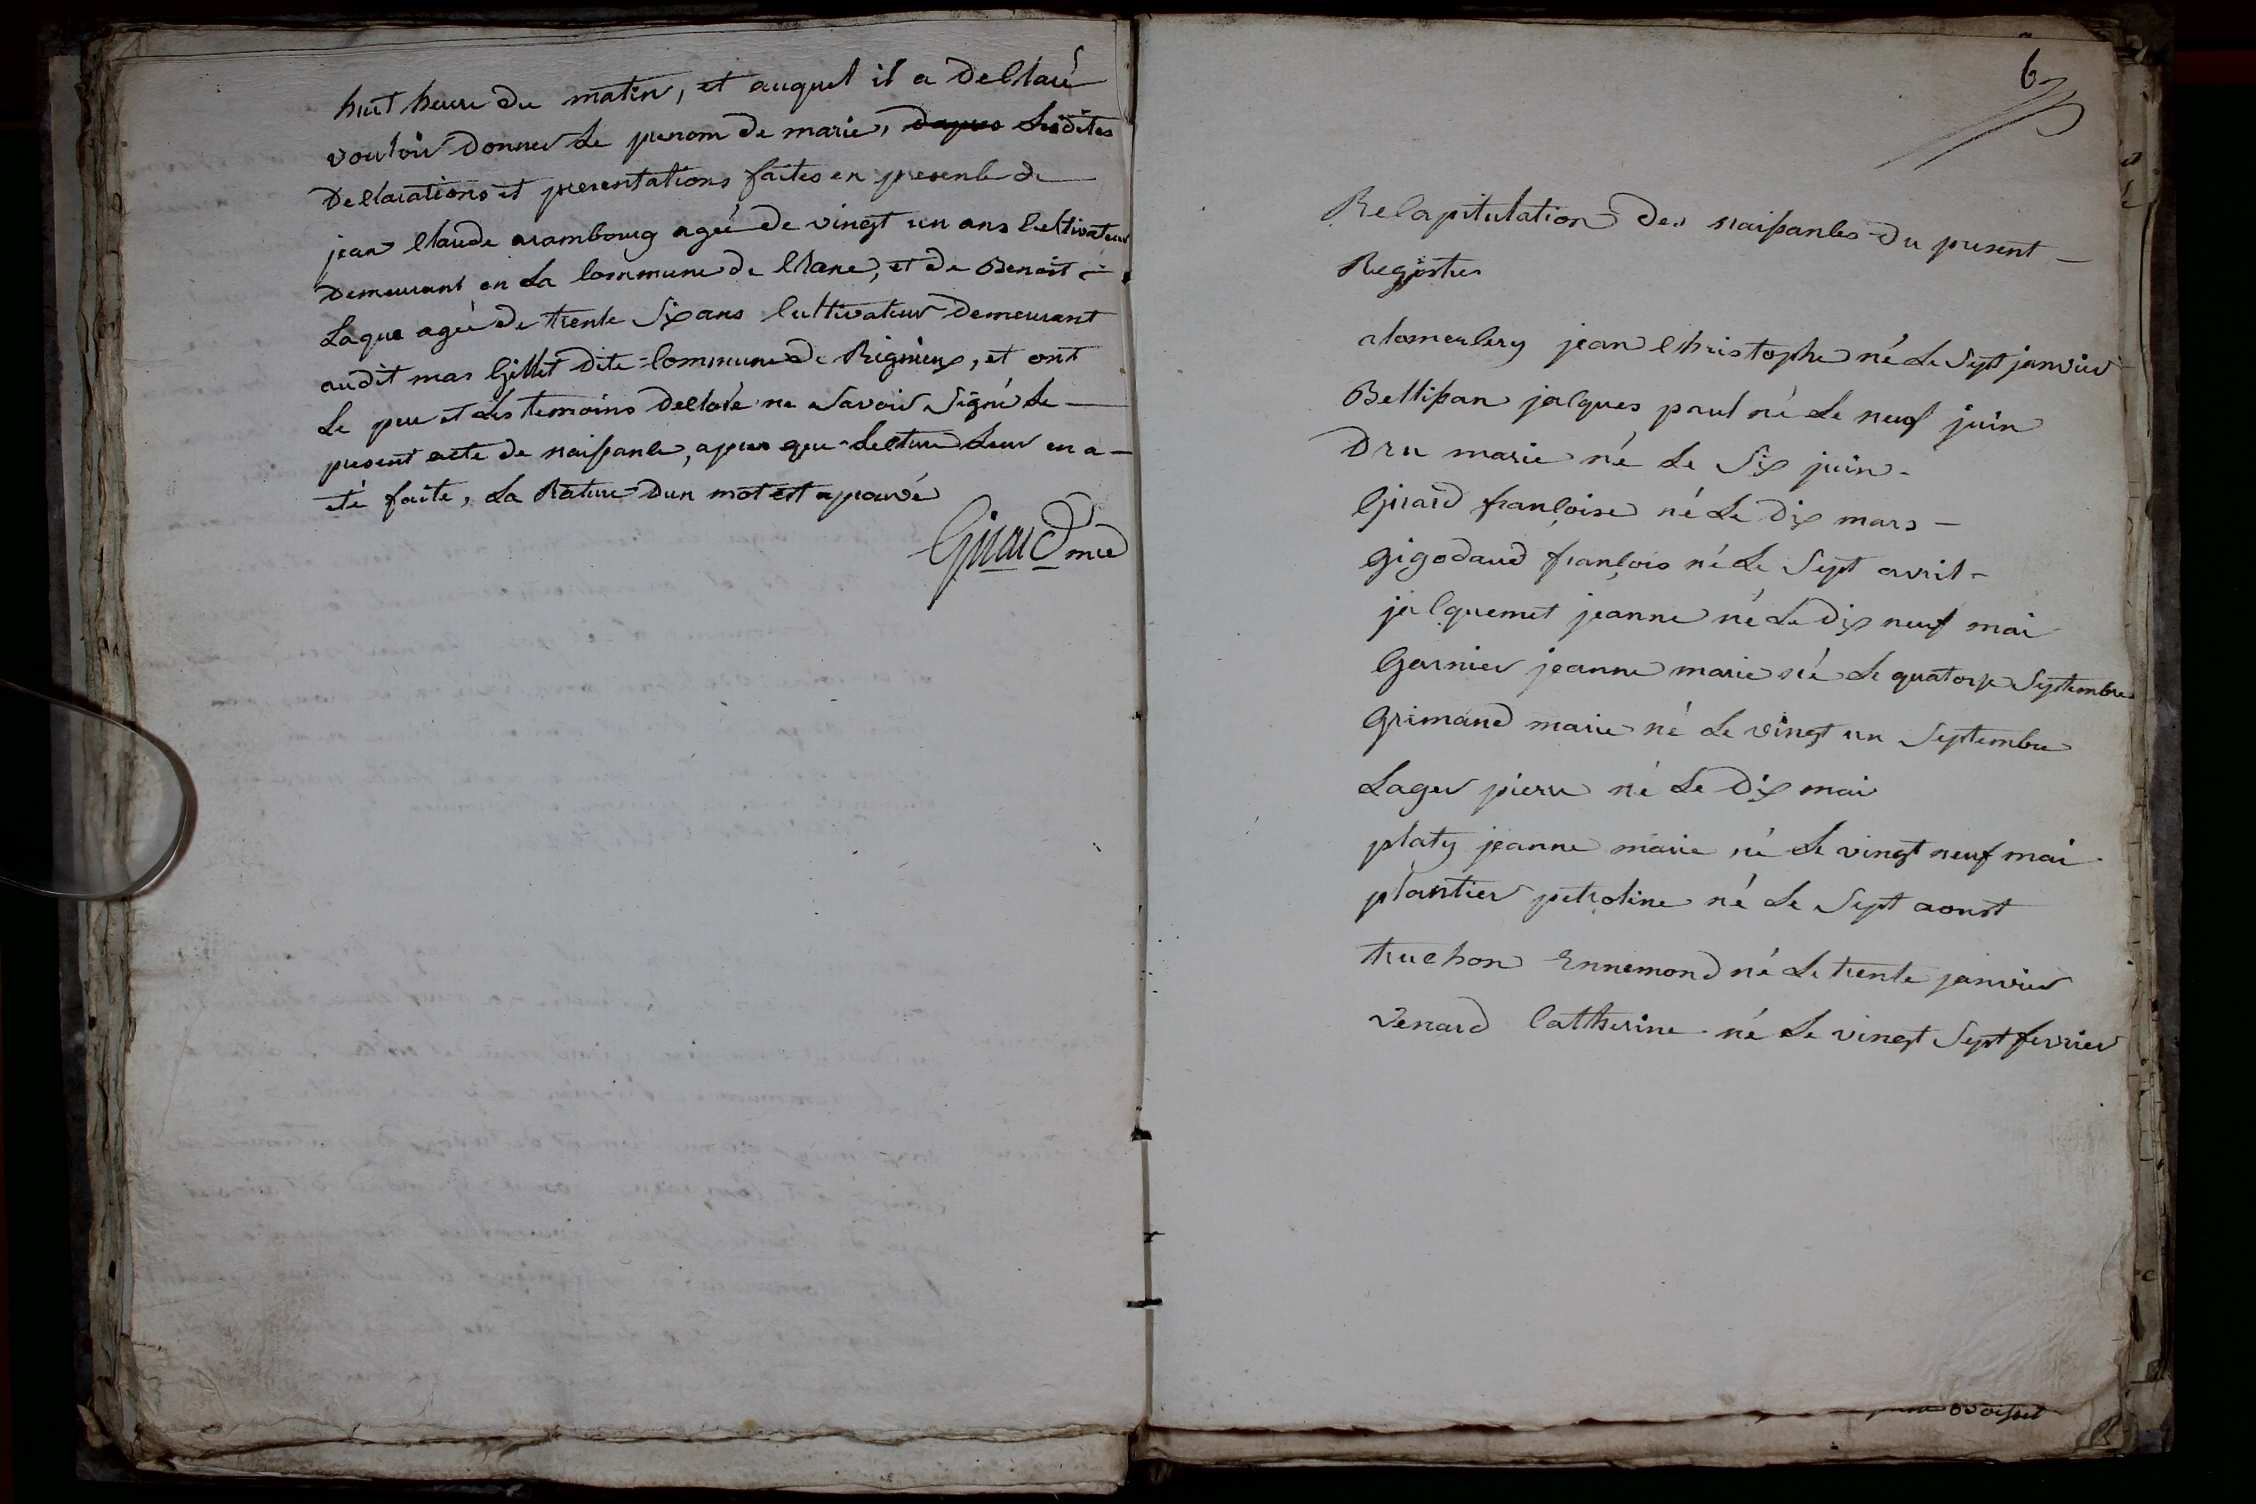 huit heure du matin, et auquel il a declaré
vouloir donner le prenom de marie, dapres Lesdites
Declarations et presentations faites en presence de
jean claude arambourg ageé de vingt un ans cultivateur
Demeurant en La commune de Crane, et de Benoit
Laque ageé de trente Six ans cultivateur Demeurant
audit mas Gillet Dite commune de Rignieux, et ont
Le pere et Les temoins declaré ne Savoir Signé Le
present acte de naissance, apres que Lecture Leur en a
eté faite, La Rature Dun mot est aprouvé
Girard mre
6
Recapitulation Des naissances Du present
Registres
jean christophe né Le Sept janvier
Bellissan jacques paul né Le neuf juin
Dru marie né Le Six juin
Girard françoise né Le Dix mars
Gigodaud françois né Le Sept avril
jacquemet jeanne né Le Dix neuf mai
Garnier jeanne marie né Le quatorze Septembre
Grimand marie né Le vingt un Septembre
Lager pierre né Le Dix mai
platy jeanne marie né Le vingt neuf mai
plantier petroline né Le Sept aoust
truchon Ennemond né Le trente janvier
Venard Catherine né Le vingt Sept fevrier